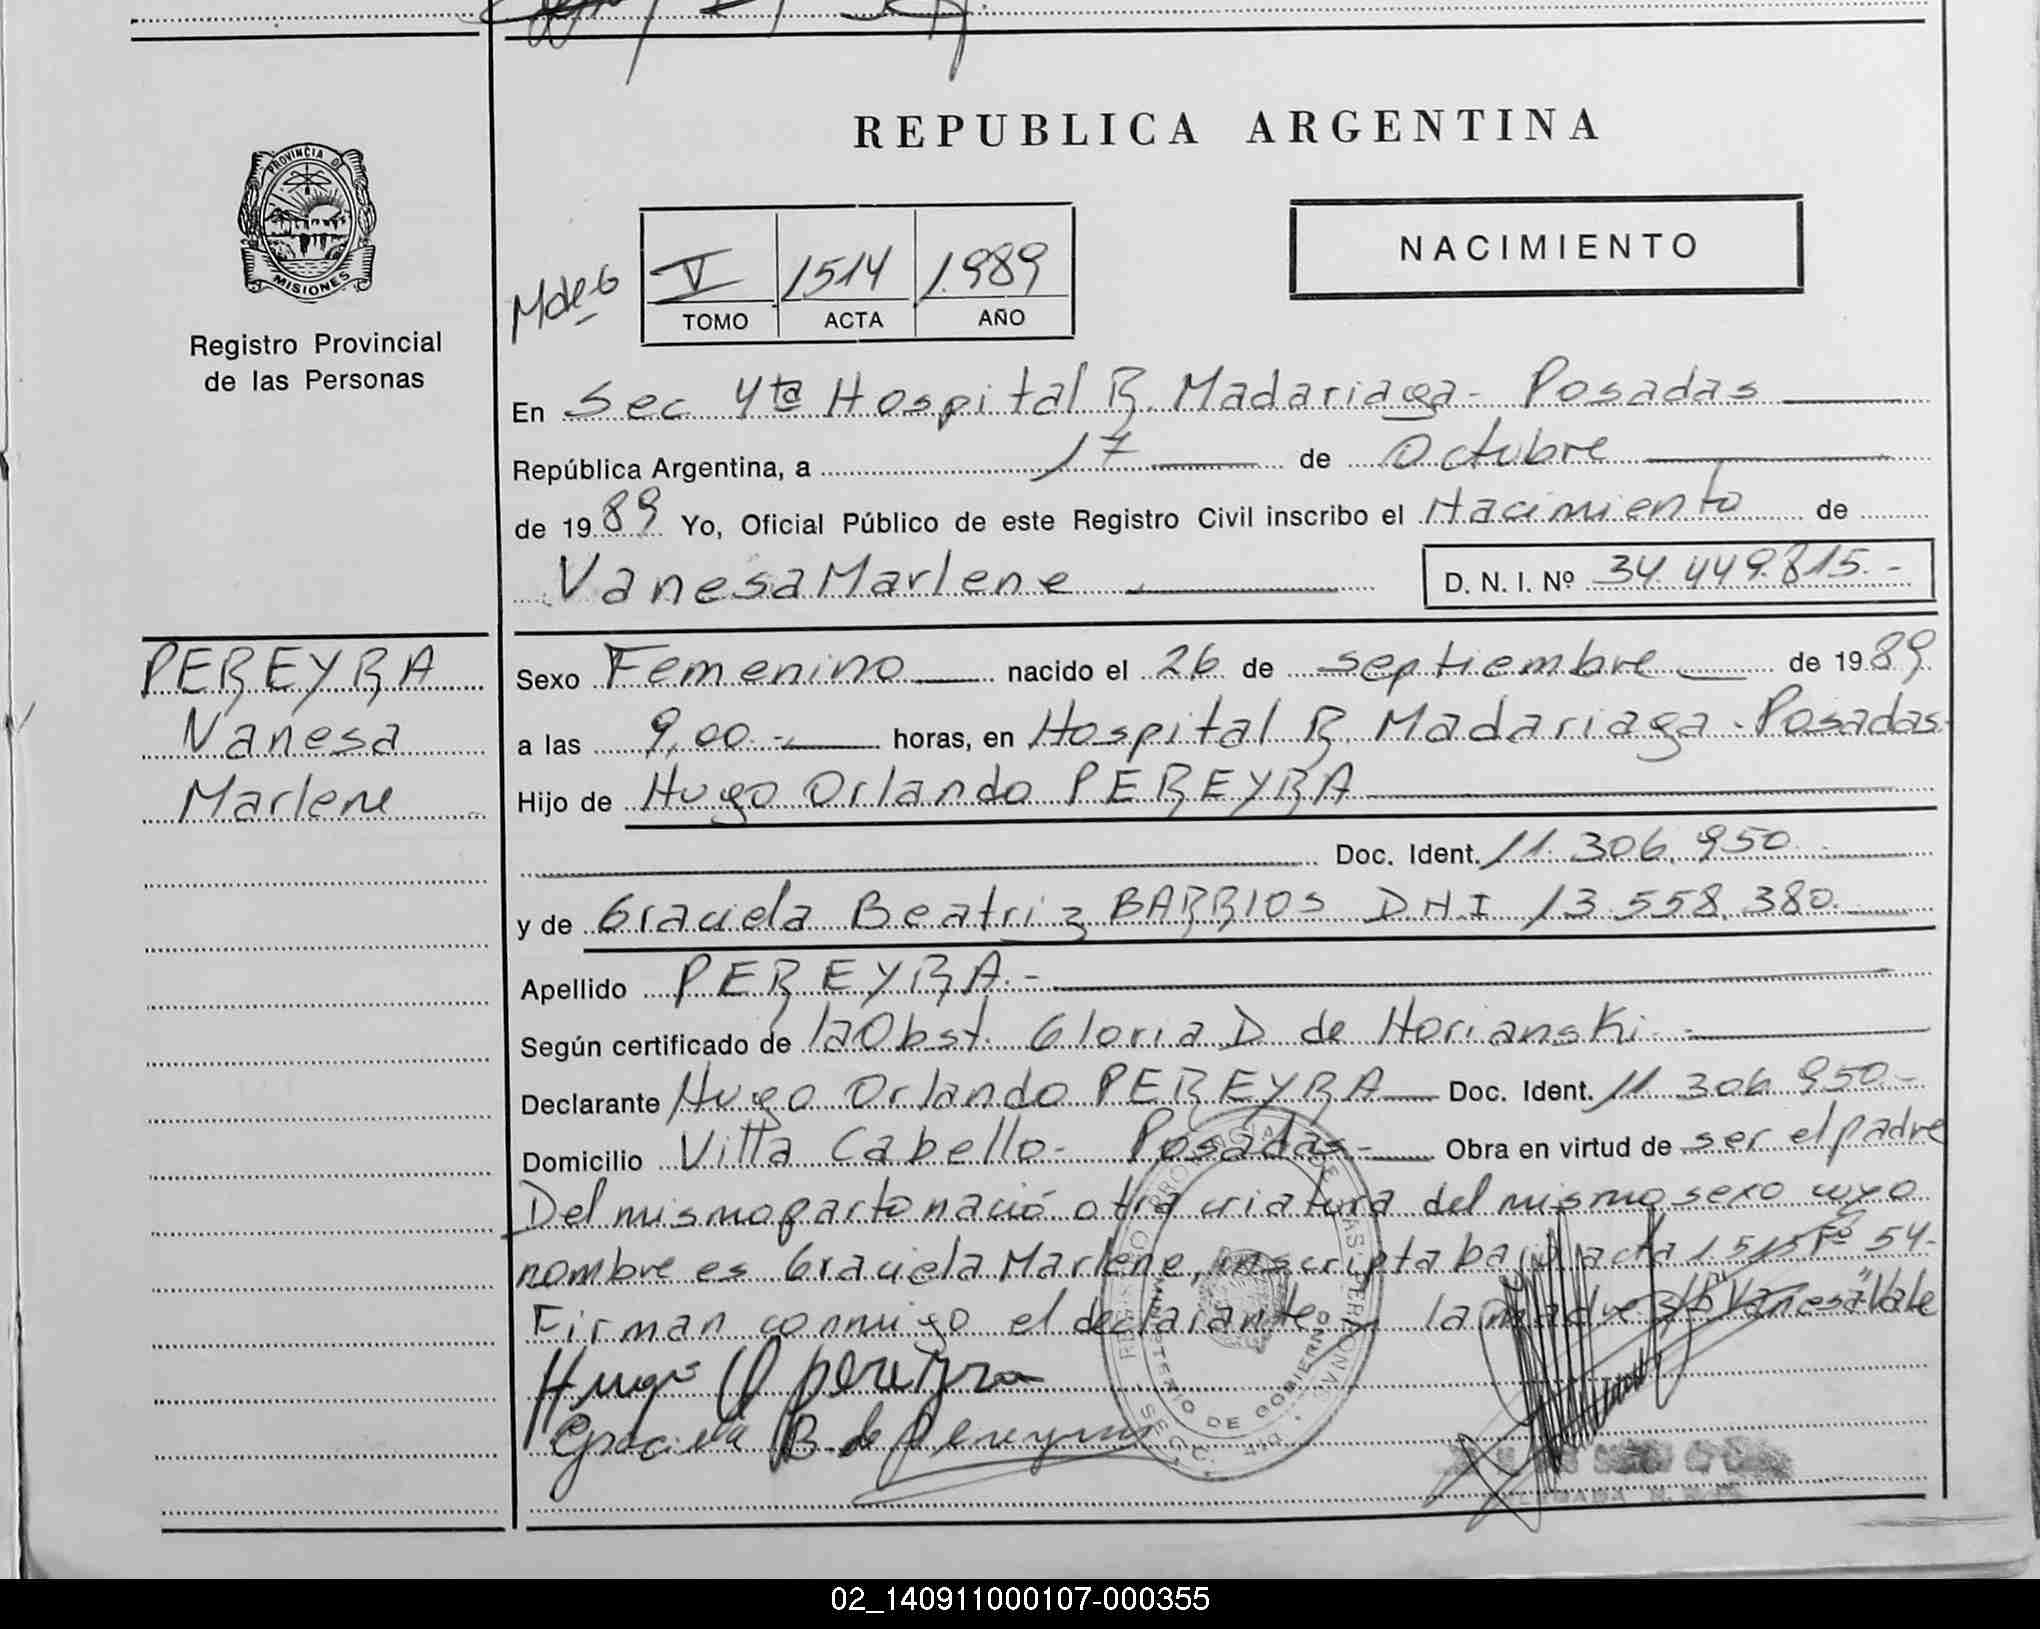 REPUBLICA ARGENTINA
PROVINCIA DE
MISIONES
Registro Provincial
de las Personas
NACIMIENTO
V 1514 1.989
TOMO ACTA AÑO
En Sec 4ta Hospital R. Madariaga - Posadas
República Argentina, a 17 de Octubre
de 1989 Yo, Oficial Público de este Registro Civil inscribo el Nacimiento de
Vanesa Marlene D. N. I. Nº 34.449.815.-
PEREYRA
Vanesa
Marlene
Sexo Femenino nacido el 26 de septiembre de 1989
a las 9,00.- horas, en Hospital R. Madariaga - Posadas
Hijo de Hugo Orlando PEREYRA
Doc. Ident. 11.306.950
y de Graciela Beatriz BARRIOS DNI 13.558.380.
Apellido PEREYRA.-
Según certificado de la Obst. Gloria D de Norianski.-
Declarante Hugo Orlando PEREYRA Doc. Ident. 11.306.950.-
Domicilio Villa Cabello - Posadas.- Obra en virtud de ser el padre
Del mismo parto nació otra criatura del mismo sexo cuyo
nombre es Graciela Marlene, inscripta bajo acta 1.515 Fº 54.
Firman conmigo el declarante y la madre "Vanesa" Vale
Hugo O pereyra
Graciela B. de Pereyra
MINISTERIO DE GOBIERNO
02_140911000107-000355